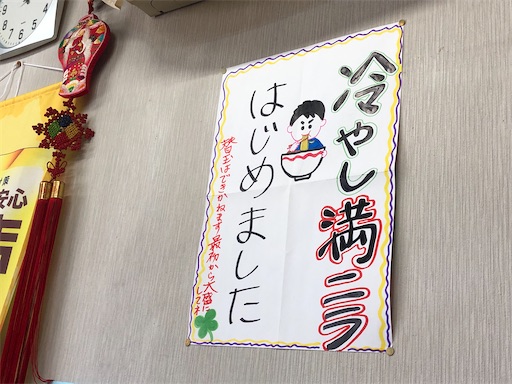 冷やし満ニラ
はじめました
替玉はできかねます最初から大盛に
してネ
安心